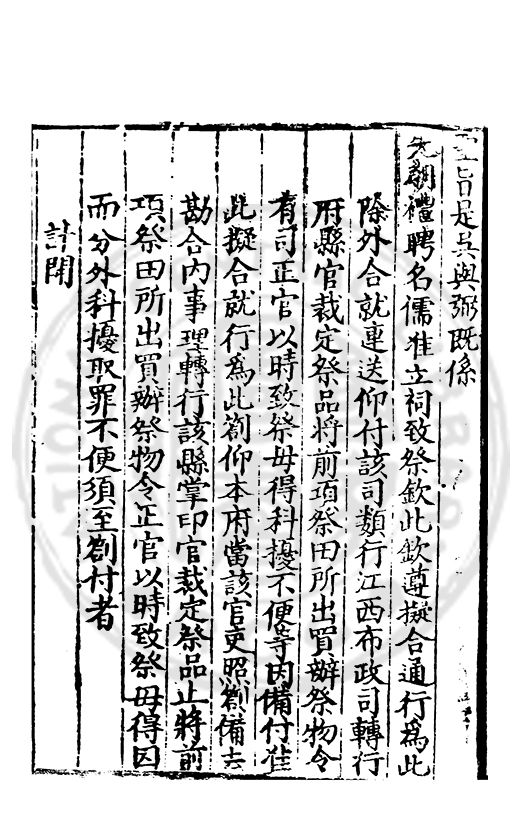 聖旨是吳與弼既係
先朝禮聘名儒准立祠致祭欽此欽遵擬合通行爲此
除外合就連送仰付該司類行江西布政司轉行
府縣官裁定祭品將前項祭田所出買辦祭物令
有司正官以時致祭毋得科擾不便等因備付准
此擬合就行爲此劄仰本府當該官吏照劄備去
勘合內事理轉行該縣掌印官裁定祭品止將前
項祭田所出買辦祭物令正官以時致祭毋得因
而分外科擾取罪不便須至劄付者
計開